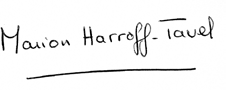 Marion Harroff-Tavel